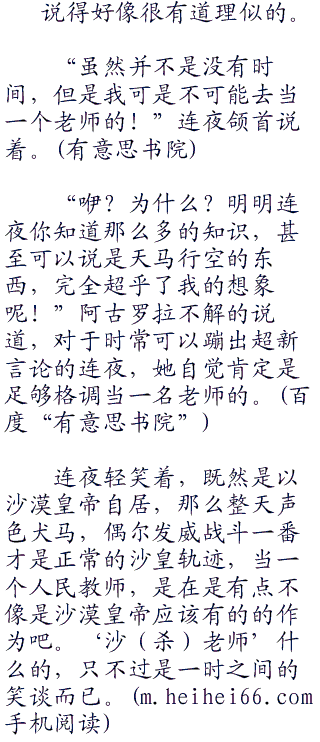 说得好像很有道理似的。
“虽然并不是没有时
间，但是我可是不可能去当
一个老师的！”连夜颌首说
着。(有意思书院)
“咿？为什么？明明连
夜你知道那么多的知识，甚
至可以说是天马行空的东
西，完全超乎了我的想象
呢！”阿古罗拉不解的说
道，对于时常可以蹦出超新
言论的连夜，她自觉肯定是
足够格调当一名老师的。(百
度“有意思书院”)
连夜轻笑着，既然是以
沙漠皇帝自居，那么整天声
色犬马，偶尔发威战斗一番
才是正常的沙皇轨迹，当一
个人民教师，是在是有点不
像是沙漠皇帝应该有的的作
为吧。‘沙（杀）老师’什
么的，只不过是一时之间的
笑谈而已。(m.heihei66.com
手机阅读)